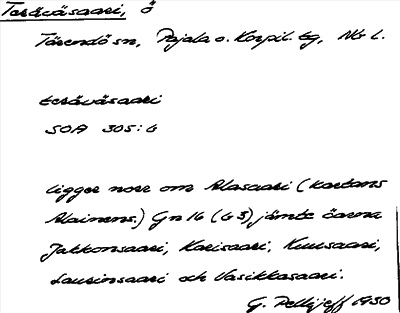 Teräväsaari, ö
Tärendö sn, Pajala o. Korpil. tg, Nb l.
teräväsaari
SOA 305:6
ligger norr om Alasaari (kartans
Alainens.) Gn 16 (G 3) jämte öarna
Jakkonsaari, Karisaari, Kuusaari,
Laurinsaari och Vasikkasaari.
G. Pellijeff 1950